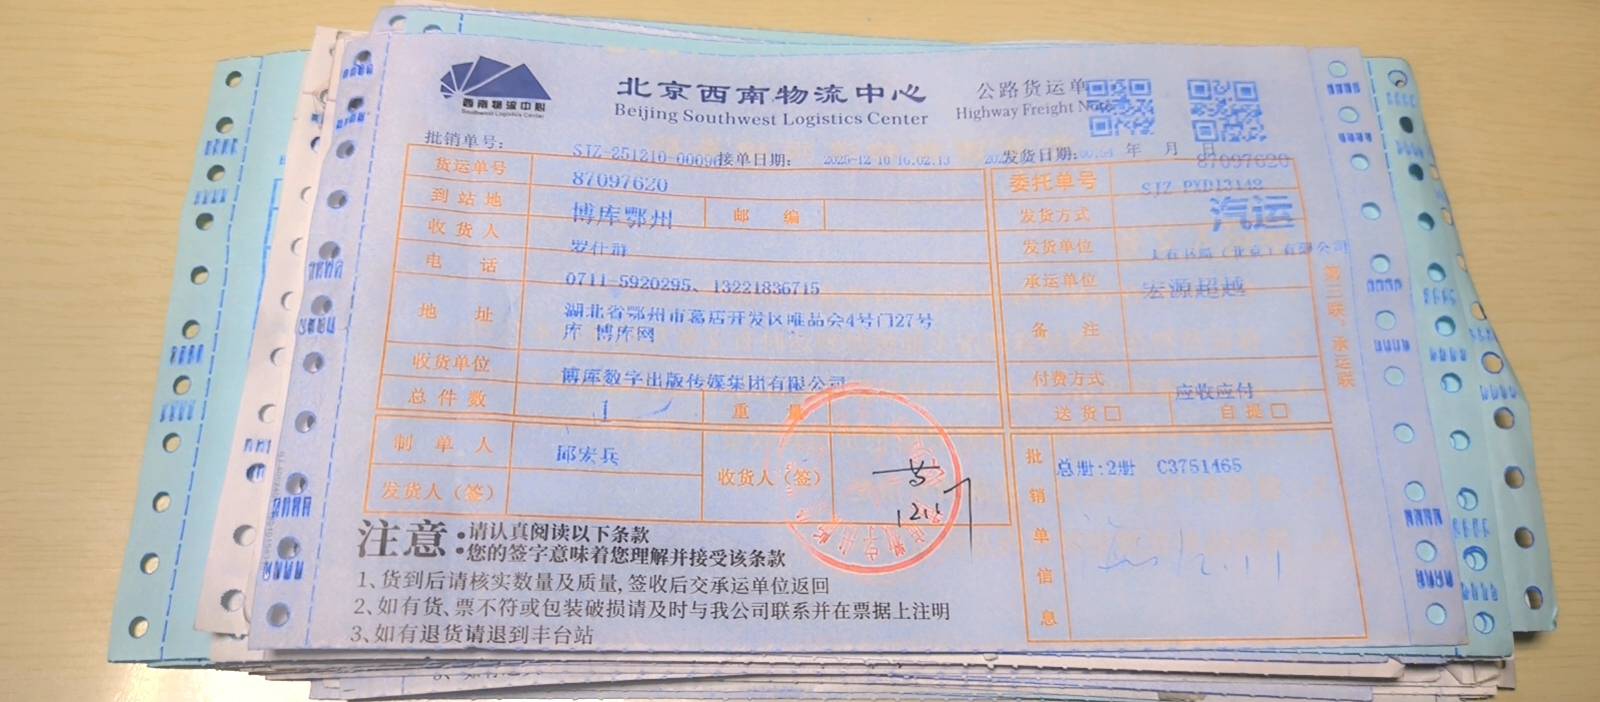 西南物流中心
Southwest Logistics Center
北京西南物流中心
Beijing Southwest Logistics Center
公路货运单
Highway Freight Note
批销单号: SJZ-251210-00096 接单日期: 2025-12-10 16:02:13 发货日期: 年 月 日
87097620
货运单号 87097620
委托单号 SJZ-PXD13142
到站地 博库鄂州 邮编
发货方式 汽运
收货人
发货单位
电话 0711-5920295、13221836715
承运单位 宏源超越
地址 湖北省鄂州市葛店开发区唯品会4号门27号
库 博库网
备注
收货单位 博库数字出版传媒集团有限公司
付费方式 应收应付
总件数 1 重量
送货□ 自提□
制单人 邱宏兵
收货人(签)
发货人(签)
批销单信息
总册:2册 C3751465
12.11
第三联:承运联
注意:
请认真阅读以下条款
您的签字意味着您理解并接受该条款
1、货到后请核实数量及质量,签收后交承运单位返回
2、如有货、票不符或包装破损请及时与我公司联系并在票据上注明
3、如有退货请退到丰台站